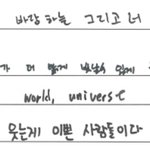 바람 하늘 그리고 너
가 더 밝게 빛날수 있게
world, universe
웃는게 이쁜 사람들이다